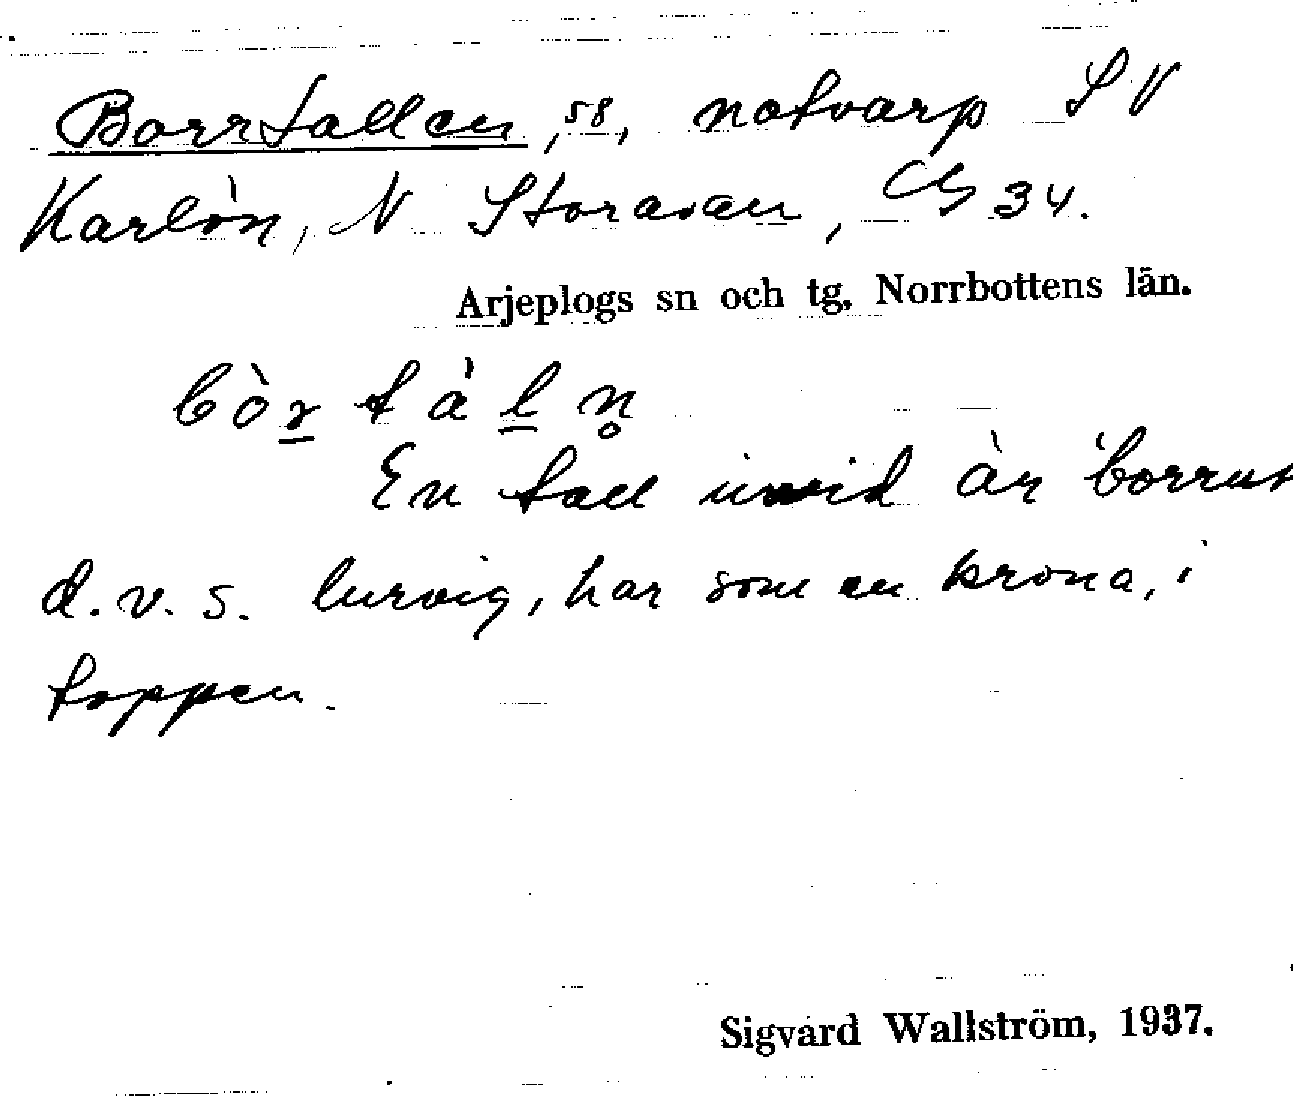 Borrtallen, 58, notvarp SV
Karlön, N Storavan, Cb 34.
Arjeplogs sn och tg. Norrbottens län.
bòr tàl n̥
En tall invid är 'borrut
d.v.s. lurvig, har som en krona, i
toppen.
Sigvard Wallström, 1937.